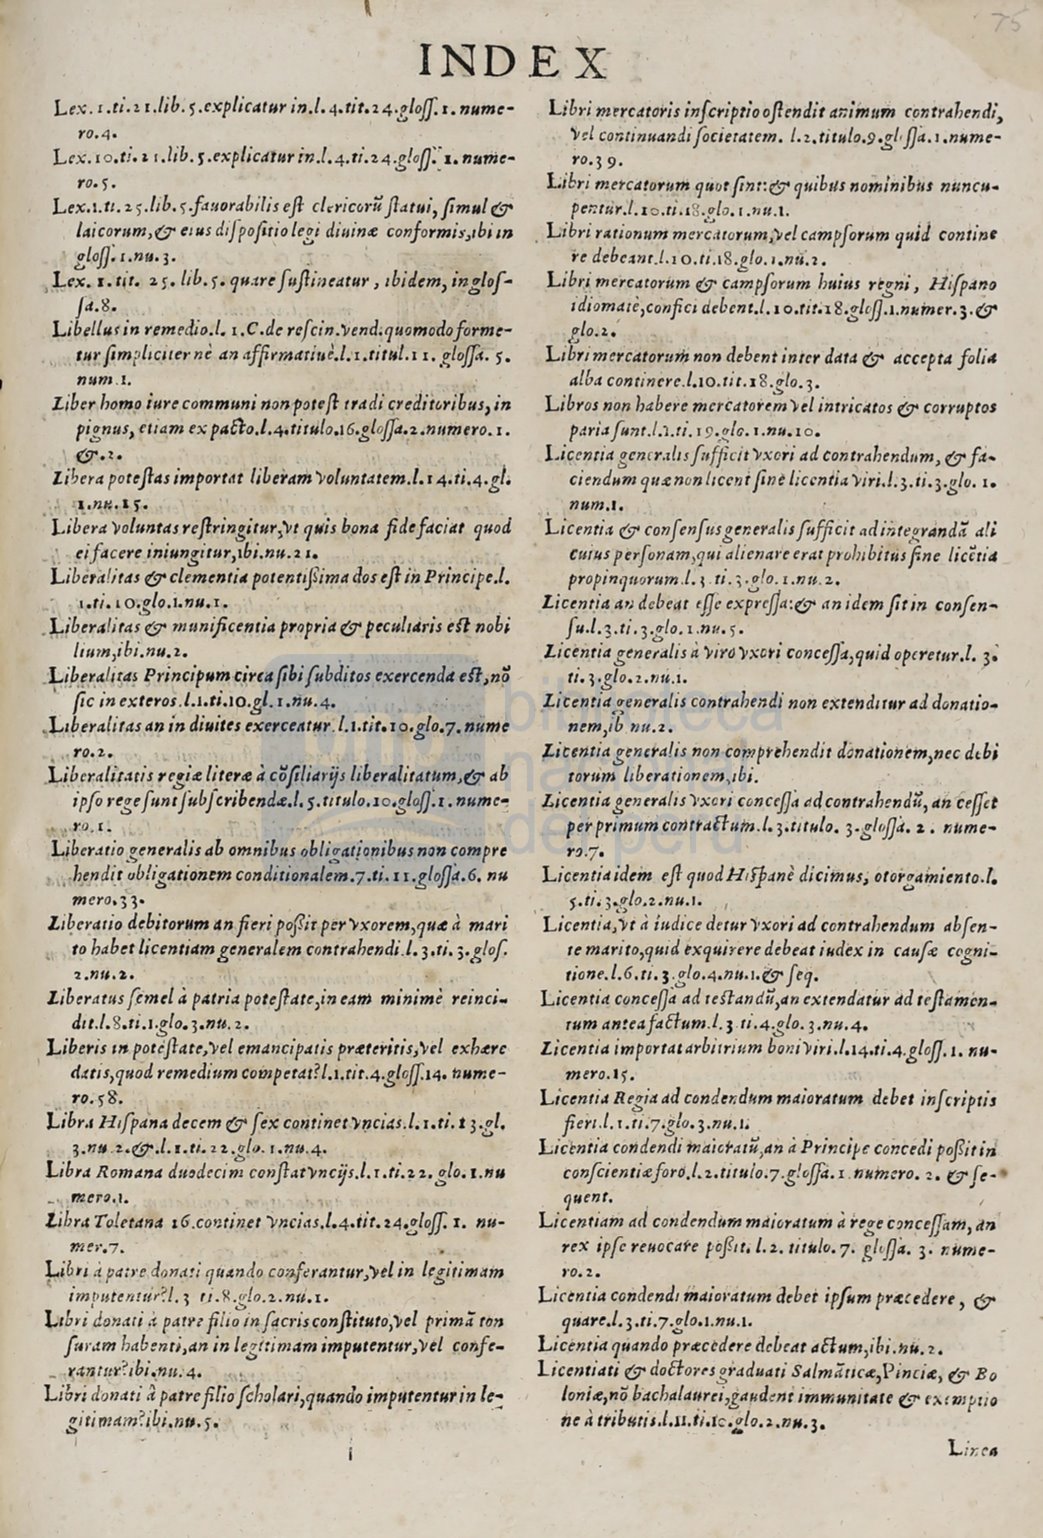 75
INDEX
Lex. 1.ti.21.lib.5.explicatur in.l.4.tit.24.gloſſ.1.nume-
ro.4.
Lex.10.ti.21.lib.5.explicatur in.l.4.ti.24.gloſſ.1.nume-
ro.5.
Lex.1.ti.25.lib.5.fauorabilis eſt clericorũ ſtatui, ſimul &
laicorum,& eius diſpoſitio legi diuinæ conformis,ibi in
gloſſ.1.nu.3.
Lex. 1. tit. 25. lib.5. quare ſuſtineatur , ibidem, in gloſ-
ſa.8.
Libellus in remedio.l. 1.C.de reſcin.vend.quomodo forme-
tur ſimpliciter nè an affirmatiuè.l.1.titul.11. gloſſa. 5.
num.1.
Liber homo iure communi non poteſt tradi creditoribus, in
pignus, etiam ex pacto.l.4.titulo.16.gloſſa.2.numero.1.
&.2.
Libera poteſtas importat liberam voluntatem.l.14.ti.4.gl.
1.nu.15.
Libera voluntas reſtringitur,vt quis bona fide faciat quod
ei facere iniungitur,ibi.nu.21.
Liberalitas & clementia potentiſsima dos eſt in Principe.l.
1.ti.10.glo.1.nu.1.
Liberalitas & munificentia propria & peculiaris eſt nobi
lium,ibi.nu.2.
Liberalitas Principum circa ſibi ſubditos exercenda eſt,nõ
ſic in exteros.l.1.ti.10.gl.1.nu.4.
Liberalitas an in diuites exerceatur.l.1.tit.10.glo.7.nume
ro.2.
Liberalitatis regiæ literæ à cõſiliarijs liberalitatum,& ab
ipſo rege ſunt ſubſcribendæ.l.5.titulo.10.gloſſ.1.nume-
ro.1.
Liberatio generalis ab omnibus obligationibus non compre
hendit obligationem conditionalem.7.ti.11.gloſſa.6. nu
mero.33.
Liberatio debitorum an fieri poſsit per vxorem,quæ à mari
to habet licentiam generalem contrahendi.l.3.ti.3.gloſ.
2.nu.2.
Liberatus ſemel à patria poteſtate,in eam minimè reinci-
dit.l.8.ti.1.glo.3.nu.2.
Liberis in poteſtate,vel emancipatis præteritis,vel exhære
datis,quod remedium competat?l.1.tit.4.gloſſ.14. nume-
ro.58.
Libra Hiſpana decem & ſex continet vncias.l.1.ti.13.gl.
3.nu.2.&.l.1.ti.22.glo.1.nu.4.
Libra Romana duodecim conſtat vncijs.l.1.ti.22.glo.1.nu
mero.1.
Libra Toletana 16.continet vncias.l.4.tit.24.gloſſ. 1. nu-
mer.7.
Libri à patre donati quando conferantur,vel in legitimam
imputentur?l.3 ti.8.glo.2.nu.1.
Libri donati à patre filio in ſacris conſtituto,vel primã ton
ſuram habenti,an in legitimam imputentur,vel confe-
rantur?ibi,nu.4.
Libri donati à patre filio ſcholari,quando imputentur in le-
gitimam?ibi.nu.5.
i
Libri mercatoris inſcriptio oſtendit animum contrahendi,
vel continuandi ſocietatem. l.2.titulo.9.gloſſa.1.nume-
ro.39.
Libri mercatorum quot ſint:& quibus nominibus nuncu-
pentur.l.10.ti.18.glo.1.nu.1.
Libri rationum mercatorum,vel campſorum quid contine
re debeant.l.10.ti.18.glo.1.nu.2.
Libri mercatorum & campſorum huius regni, Hiſpano
idiomatè,confici debent.l.10.tit.18.gloſſ.1.numer.3.&
glo.2.
Libri mercatorum non debent inter data & accepta folia
alba continere.l.10.tit.18.glo.3.
Libros non habere mercatorem vel intricatos & corruptos
paria ſunt.l.2.ti.19.glo.1.nu.10.
Licentia generalis ſufficit vxori ad contrahendum, & fa-
ciendum quæ non licent ſinè licentia viri.l.3.ti.3.glo. 1.
num.1.
Licentia & conſenſus generalis ſufficit ad integrandã ali
cuius perſonam,qui alienare erat prohibitus ſine licẽtia
propinquorum.l.3 ti.3.glo.1.nu.2.
Licentia an debeat eſſe expreſſa:& an idem ſit in conſen-
ſu.l.3.ti.3.glo.1.nu.5.
Licentia generalis à viro vxori conceſſa,quid operetur.l. 3.
ti.3.glo.2.nu.1.
Licentia generalis contrahendi non extenditur ad donatio-
nem,ib nu.2.
Licentia generalis non comprehendit donationem,nec debi
torum liberationem,ibi.
Licentia generalis vxori conceſſa ad contrahendũ, an ceſſet
per primum contractum.l.3.titulo. 3.gloſſa. 2. nume-
ro.7.
Licentia idem eſt quod Hiſpanè dicimus, otorgamiento.l.
5.ti.3.glo.2.nu.1.
Licentia,vt à iudice detur vxori ad contrahendum abſen-
te marito,quid exquirere debeat iudex in cauſæ cogni-
tione.l.6.ti.3.glo.4.nu.1.& ſeq.
Licentia conceſſa ad teſtandũ,an extendatur ad teſtamen-
tum antea factum.l.3 ti.4.glo.3.nu.4.
Licentia importat arbitrium boni viri.l.14.ti.4.gloſſ.1. nu-
mero.15.
Licentia Regia ad condendum maioratum debet inſcriptis
fieri.l.1.ti.7.glo.3.nu.1.
Licentia condendi maioratũ,an à Principe concedi poſsit in
conſcientiæ foro.l.2.titulo.7.gloſſa.1.numero. 2. & ſe-
quent.
Licentiam ad condendum maioratum à rege conceſſam, an
rex ipſe reuocare poſsit. l.2. titulo. 7. gloſſa. 3. nume-
ro.2.
Licentia condendi maioratum debet ipſum præcedere, &
quare.l.3.ti.7.glo.1.nu.1.
Licentia quando præcedere debeat actum,ibi.nu.2.
Licentiati & doctores graduati Salmãticæ,Pinciæ, & Bo
loniæ,nõ bachalaurei,gaudent immunitate & exemptio
ne à tributis.l.11.ti.1c.glo.2.nu.3.
Linea
biblioteca
nacional
del perú